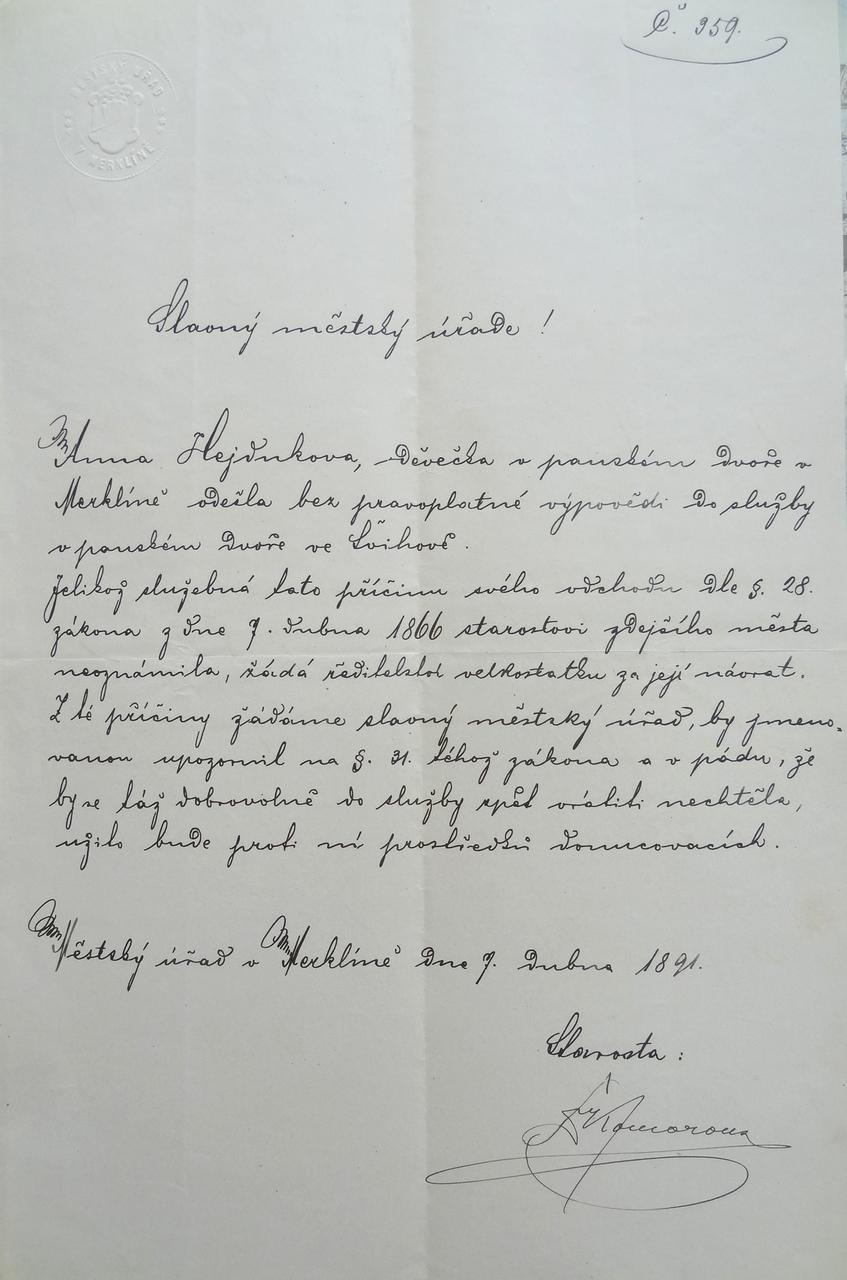 Č. 959.
MĚSTSKÝ ÚŘAD
V MERKLÍNĚ
Slavný městský úřade!
Anna Hejduková, děvečka v panském dvoře v
Merklíně odešla bez pravoplatné výpovědi do služby
v panském dvoře ve Švihově.
Jelikož služebná tato příčinu svého odchodu dle §. 28.
zákona z dne 7. dubna 1866 starostovi zdejšího města
neoznámila, žádá ředitelství velkostatku za její návrat.
Z té příčiny žádáme slavný městský úřad, by jmeno-
vanou upozornil na §. 31. téhož zákona a v pádu, že
by se táž dobrovolně do služby zpět vrátiti nechtěla,
užito bude proti ní prostředků donucovacích.
Městský úřad v Merklíně dne 7. dubna 1891.
Starosta: